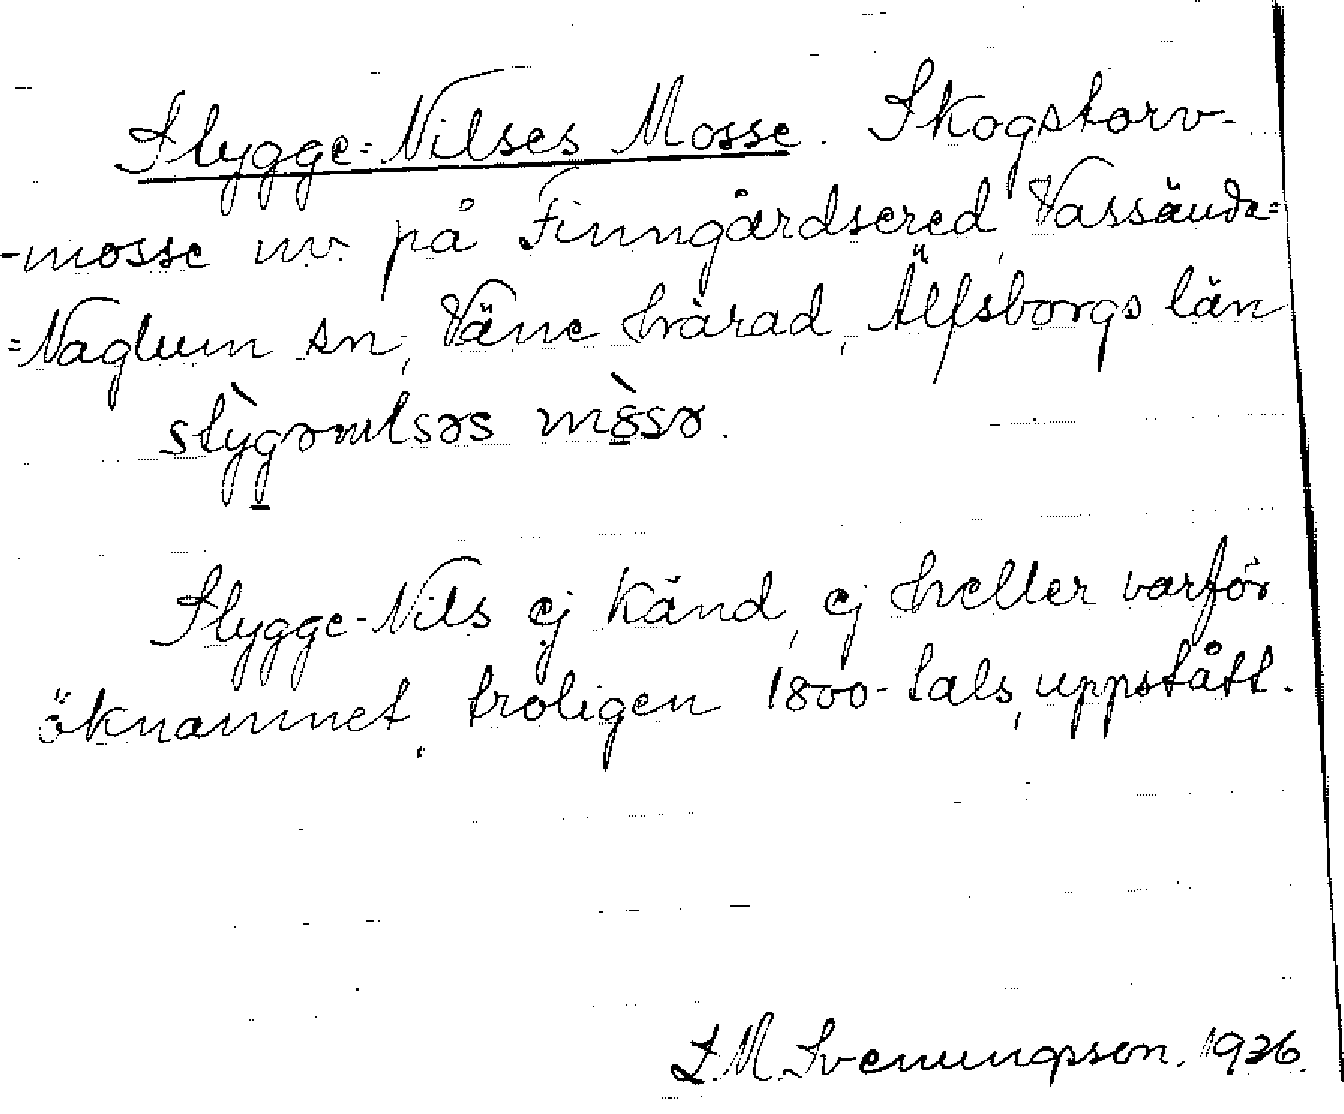 Stygge-Nilses Mosse. Skogstorv-
-mosse nv. på Finngårdsered, Vassända-
=Naglum sn, Väne härad, Älfsborgs län
stỳgənılsəs mòsə.
Stygge-Nils ej känd, ej heller varför
öknamnet, troligen 1800-tals, uppstått.
L. M. Svenungsson. 1926.